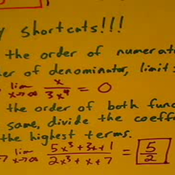 shortcuts!!!
the order of
of denominator, limit
lim x→∞ x/3x⁴ = 0
the order of both
same, divide the
the highest terms.
lim x→∞ 5x³+3x+1/2x³+x+7 = 5/2